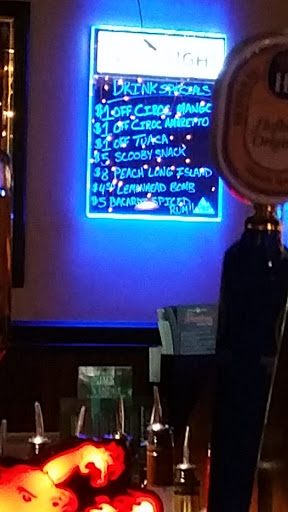 DRINK SPECIALS
$1 OFF CIROC MANGO
$1 OFF CIROC AMARETTO
$1 OFF TUACA
$5 SCOOBY SNACK
$8 PEACH LONG ISLAND
$4 LEMONHEAD BOMB
$5 BACARDI SPICED
RUM